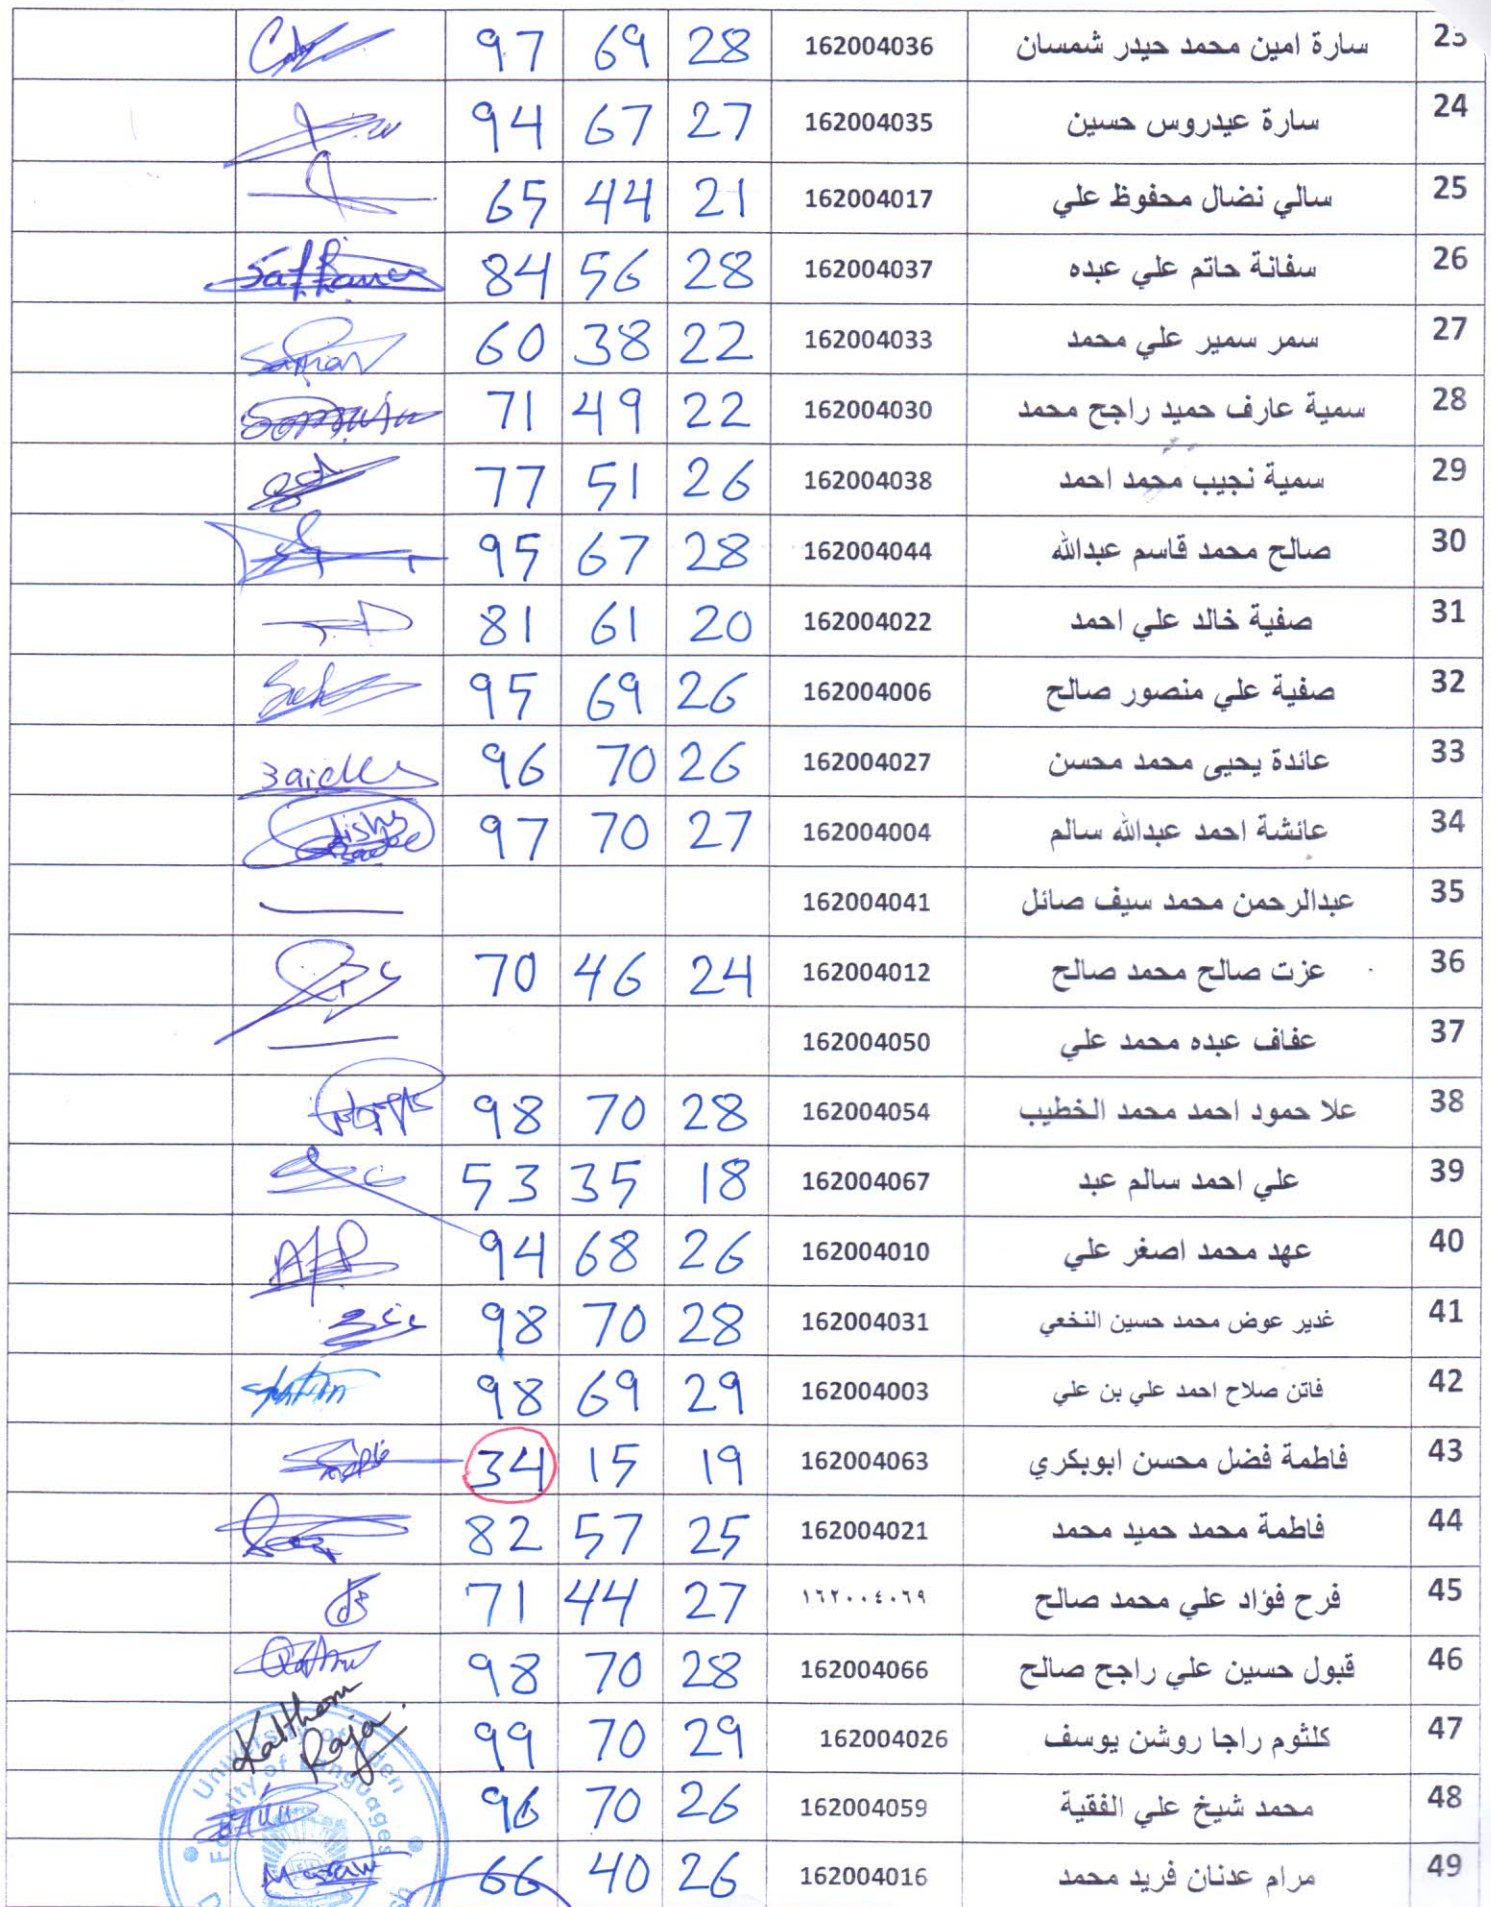 23 سارة امين محمد حيدر شمسان 162004036 28 69 97
24 سارة عيدروس حسين 162004035 27 67 94
25 سالي نضال محفوظ علي 162004017 21 44 65
26 سفانة حاتم علي عبده 162004037 28 56 84
27 سمر سمير علي محمد 162004033 22 38 60
28 سمية عارف حميد راجح محمد 162004030 22 49 71
29 سمية نجيب محمد احمد 162004038 26 51 77
30 صالح محمد قاسم عبدالله 162004044 28 67 95
31 صفية خالد علي احمد 162004022 20 61 81
32 صفية علي منصور صالح 162004006 26 69 95
33 عائدة يحيى محمد محسن 162004027 26 70 96
34 عائشة احمد عبدالله سالم 162004004 27 70 97
35 عبدالرحمن محمد سيف صائل 162004041
36 عزت صالح محمد صالح 162004012 24 46 70
37 عفاف عبده محمد علي 162004050
38 علا حمود احمد محمد الخطيب 162004054 28 70 98
39 علي احمد سالم عبد 162004067 18 35 53
40 عهد محمد اصغر علي 162004010 26 68 94
41 غدير عوض محمد حسين النخعي 162004031 28 70 98
42 فاتن صلاح احمد علي بن علي 162004003 29 69 98
43 فاطمة فضل محسن ابوبكري 162004063 19 15 34
44 فاطمة محمد حميد محمد 162004021 25 57 82
45 فرح فؤاد علي محمد صالح ١٦٢٠٠٤٠٦٩ 27 44 71
46 قبول حسين علي راجح صالح 162004066 28 70 98
47 كلثوم راجا روشن يوسف 162004026 29 70 99 Kalthom Raja
48 محمد شيخ علي الفقية 162004059 26 70 96
49 مرام عدنان فريد محمد 162004016 26 40 66
University Of Aden
Faculty of Languages